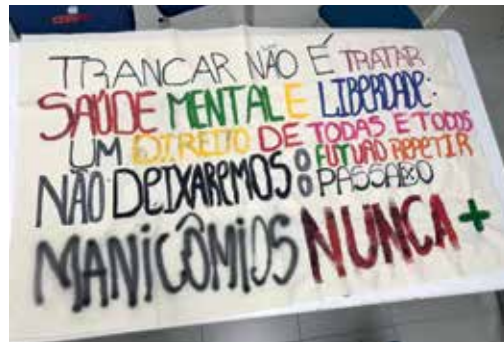 TRANCAR NÃO É TRATAR
SAÚDE MENTAL E LIBERDADE:
UM DIREITO DE TODAS E TODOS
NÃO DEIXAREMOS O FUTURO REPETIR
O PASSADO
MANICÔMIOS NUNCA +